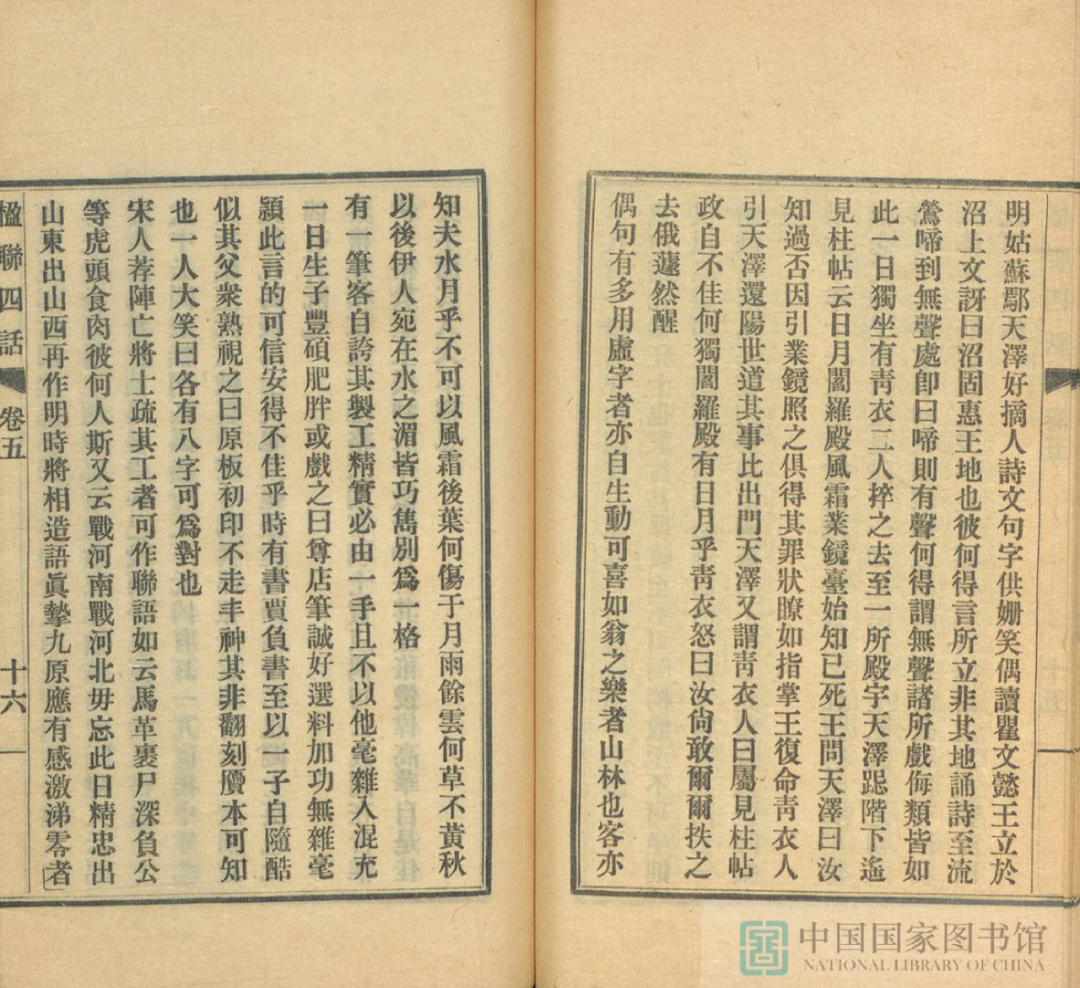 明姑蘇鄢天澤好摘人詩文句字供姍笑偶讀瞿文懿王立於
沼上文訝曰沼固惠王地也彼何得言所立非其地誦詩至流
鶯啼到無聲處卽曰啼則有聲何得謂無聲諸所戲侮類皆如
此一日獨坐有靑衣二人捽之去至一所殿宇天澤跽階下遙
見柱帖云日月闔羅殿風霜業鏡臺始知已死王問天澤曰汝
知過否因引業鏡照之俱得其罪狀瞭如指掌王復命靑衣人
引天澤還陽世道其事比出門天澤又謂靑衣人曰屬見柱帖
政自不佳何獨闔羅殿有日月乎靑衣怒曰汝尙敢爾爾抶之
去俄蘧然醒
偶句有多用虛字者亦自生動可喜如翁之樂者山林也客亦
知夫水月乎不可以風霜後葉何傷于月雨餘雲何草不黃秋
以後伊人宛在水之湄皆巧雋別爲一格
有一筆客自誇其製工精實必由一手且不以他毫雜入混充
一日生子豐碩肥胖或戲之曰尊店筆誠好選料加功無雜毫
潁此言的可信安得不佳乎時有書賈負書至以一子自隨酷
似其父衆熟視之曰原板初印不走丰神其非翻刻贋本可知
也一人大笑曰各有八字可爲對也
宋人荐陣亡將士疏其工者可作聯語如云馬革裹尸深負公
等虎頭食肉彼何人斯又云戰河南戰河北毋忘此日精忠出
山東出山西再作明時將相造語眞摯九原應有感激涕零者
楹聯四話 卷五 十六
中国国家图书馆
NATIONAL LIBRARY OF CHINA